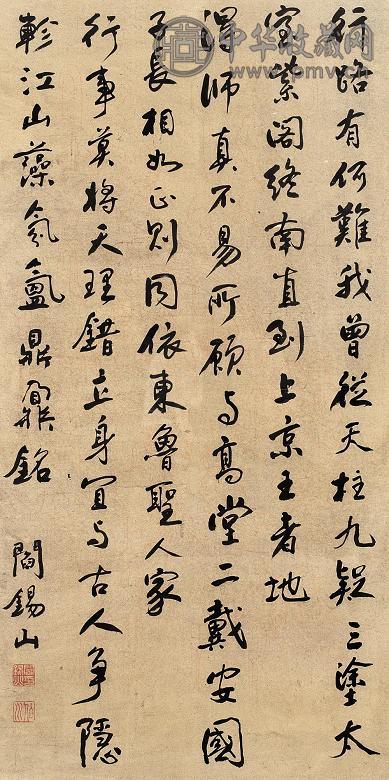 中华收藏网
www.pmv.cn
行路有何難我曾從天柱九疑三塗太
室紫閣終南直到上京王者地
得師真不易所願与高堂二戴安國
子長相如正則同依東魯聖人家
行事莫將天理錯立身宜与古人爭隱
軫江山藻氛氳鼎鼐銘
閻錫山